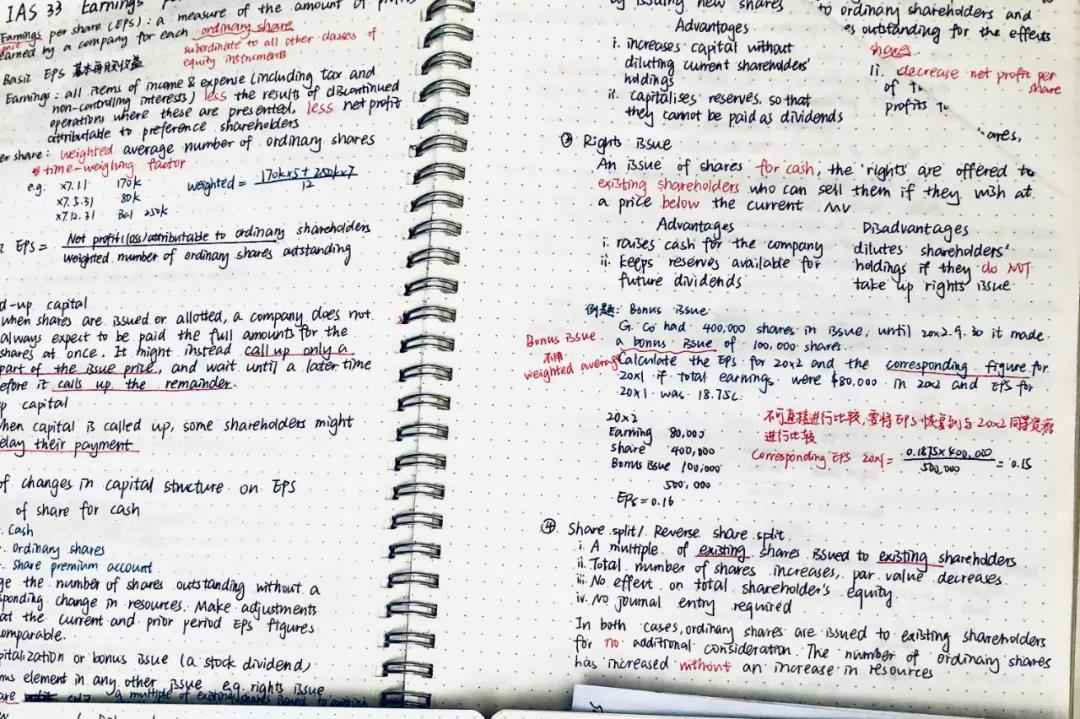 IAS 33 Earnings
Earnings per share (EPS): a measure of the amount of profits
earned by a company for each ordinary share
subordinate to all other classes of
equity instruments
Basic EPS 基本每股收益
Earnings: all items of income & expense (including tax and
non-controlling interests) less the results of discontinued
operations where these are presented, less net profit
attributable to preference shareholders
er share: weighted average number of ordinary shares
* time-weighing factor
e.g. x7.1.1 170k weighted = 170k×5+250k×7
12
x7.5.31 80k
x7.12.31 Bal 250k
EPS = Net profit(loss) attributable to ordinary shareholders
weighted number of ordinary shares outstanding
d-up capital
when shares are issued or allotted, a company does not
always expect to be paid the full amounts for the
shares at once. It might instead call up only a
part of the issue price, and wait until a later time
efore it calls up the remainder.
p capital
hen capital is called up, some shareholders might
elay their payment
of changes in capital structure on EPS
of share for cash
Cash
Ordinary shares
share premium account
ge the number of shares outstanding without a
sponding change in resources. Make adjustments
at the current and prior period EPS figures
omparable.
pitalization or bonus issue (a stock dividend)
nus element in any other issue e.g. rights issue
are a multiple of existing shares issued to existing
by issuing new shares to ordinary shareholders and
es outstanding for the effects
Advantages
shares
i. increases capital without
diluting current shareholders'
holdings
ii. capitalises reserves, so that
they cannot be paid as dividends
ii. decrease net profit per
share
of
profits
ares,
③ Rights issue
An issue of shares for cash, the 'rights' are offered to
existing shareholders who can sell them if they wish at
a price below the current MV
Advantages Disadvantages
i. raises cash for the company
ii. keeps reserves available for
future dividends
dilutes shareholders'
holdings if they do NOT
take up rights issue
例题: Bonus issue
G. Co had 400,000 shares in issue, until 20x2.9.30 it made
a bonus issue of 100,000 shares.
Calculate the EPS for 20x2 and the corresponding figure for
20x1 if total earnings were $80,000 in 20x2 and EPS for
20x1 was 18.75c.
Bonus issue
不用
weighted average
20x2
Earning 80,000
share 400,000
Bonus issue 100,000
500,000
EPS = 0.16
不可直接进行比较,要将EPS恢复到与20x2同等资源
进行比较
Corresponding EPS 20x1 = 0.1875×400,000
500,000
= 0.15
④ Share split / Reverse share split
i. A multiple of existing shares issued to existing shareholders
ii. Total number of shares increases, par value decreases
iii. No effect on total shareholder's equity
iv. No journal entry required
In both cases, ordinary shares are issued to existing shareholders
for no additional consideration. The number of ordinary shares
has increased without an increase in resources